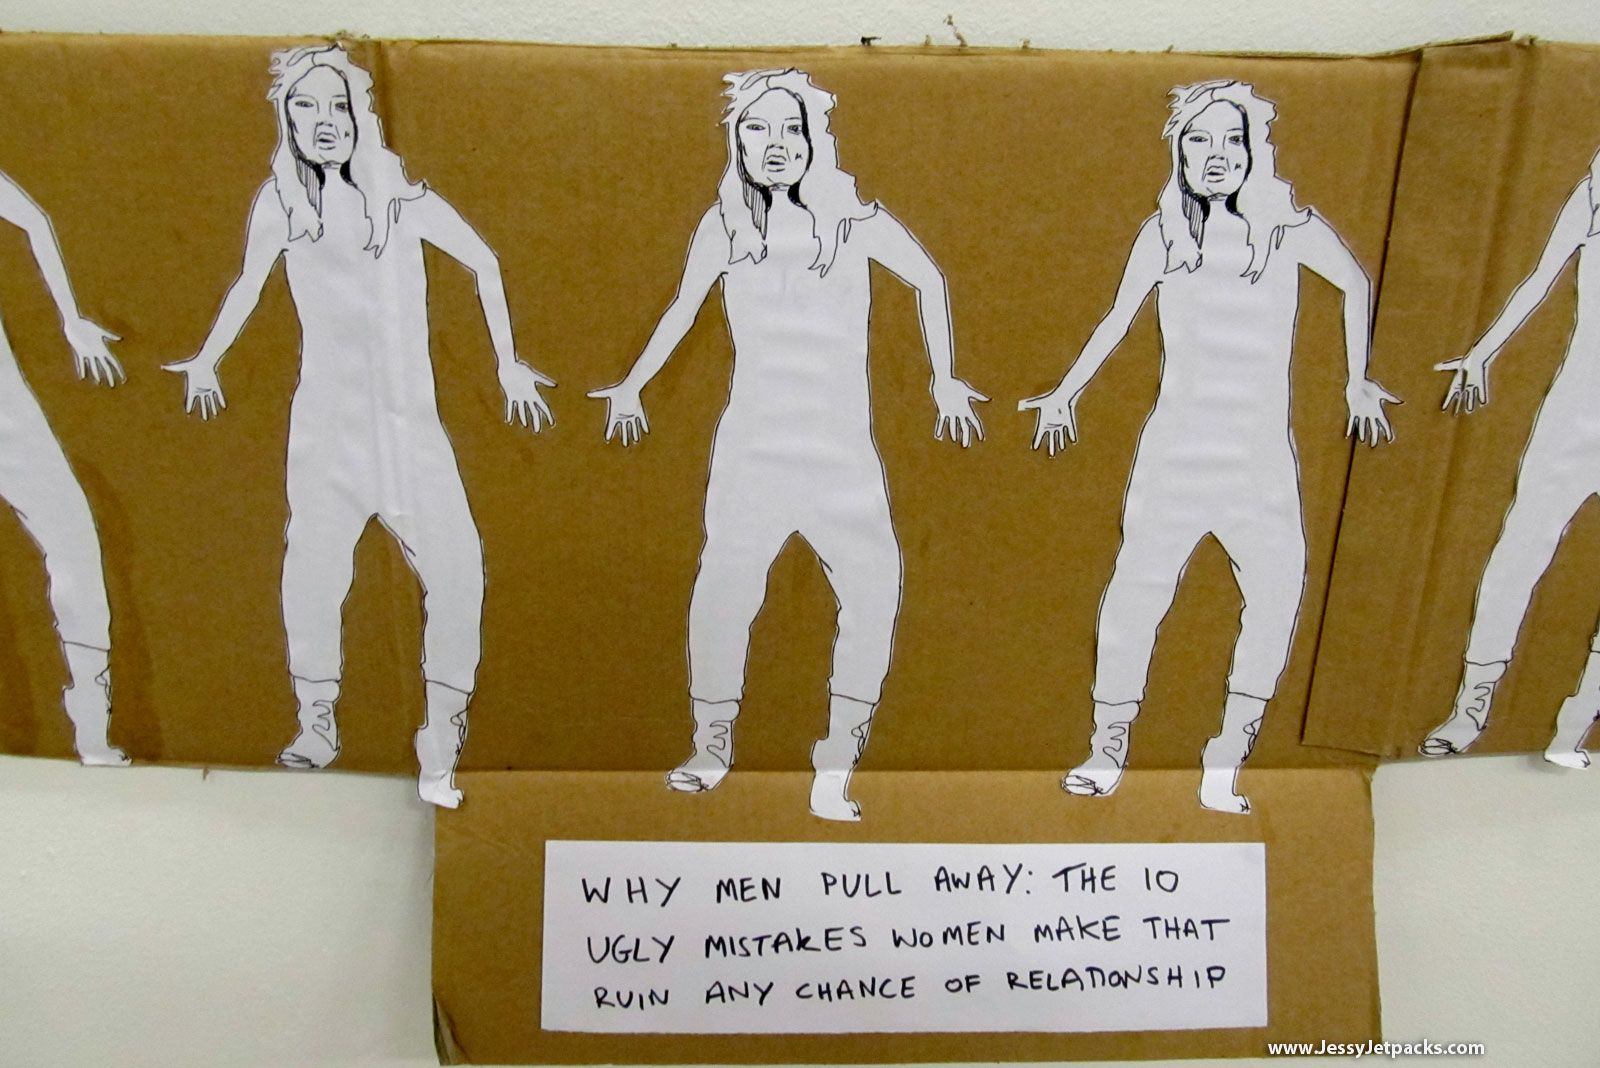 WHY MEN PULL AWAY: THE 10
UGLY MISTAKES WOMEN MAKE THAT
RUIN ANY CHANCE OF RELATIONSHIP
www.JessyJetpacks.com